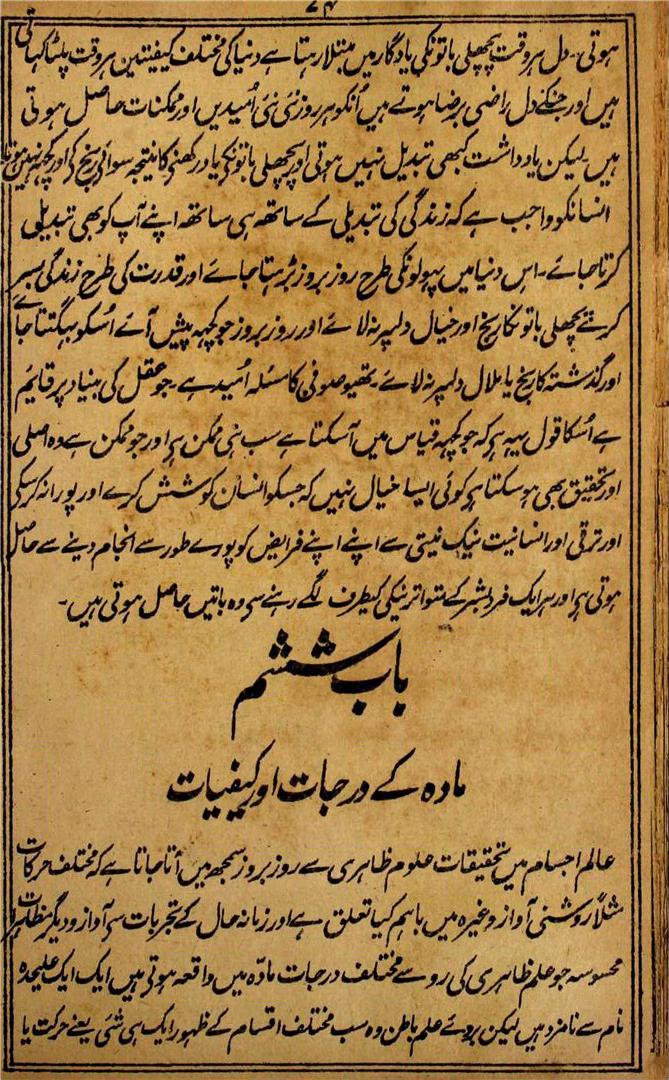 ۷۴
ہوتی۔ دل ہر وقت پچھلی باتونکی یادگار میں مبتلا رہتا ہے دنیا کی مختلف کیفیتین ہر وقت پلٹا کہاتی
ہیں اور جنکے دل راضی برضا ہوتے ہیں اُنکو ہر روز نئی نئی اُمیدیں اور ممکنات حاصل ہوتی
ہیں لیکن یادداشت کبھی تبدیل نہیں ہوتی اور پچھلی باتونکی یاد رکھنی کا نتیجہ سوائے رنج کی اور کچہہ نہیں ہوتا
انسانکو واجب ہے کہ زندگی کی تبدیلی کے ساتھ ہی ساتھ اپنے آپ کو بھی تبدیلی
کرتا جائے۔ اس دنیا میں پہولونکی طرح روز بروز بڑہتا جائے اور قدرت کی طرح زندگی بسر
کرتے پچھلی باتونکا رنج اور خیال دلپر نہ لائے اور روز بروز جو کچہہ پیش آئے اُسکو بہگتتا جائے
اور گذشتہ کا رنج یا ملال دلپر نہ لائے۔ تھیوصوفی کا مسئلہ اُمید ہے۔ جو عقل کی بنیاد پر قایم
ہے اُسکا قول یہہ ہی کہ جو کچہہ قیاس میں آسکتا ہے سب ہی ممکن ہی اور جو ممکن ہے وہ اصلی
اور تحقیق بھی ہوسکتا ہی کوئی ایسا خیال نہیں کہ جسکو انسان کوشش کرے اور پورا نہ کرسکی
اور ترقی اور انسانیت نیک نیتی سے اپنے اپنے فرایض کو پورے طور سے انجام دینے سے حاصل
ہوتی ہی اور ہر ایک فرد بشر کے متواتر نیکی کیطرف لگے رہنے سی وہ باتیں حاصل ہوتی ہیں۔
باب ششم
مادہ کے درجات اور کیفیات
عالم اجسام میں تحقیقات علوم ظاہری سے روز بروز سمجھ میں آتا جاتا ہے کہ مختلف حرکات
مثلاً روشنی آواز وغیرہ میں باہم کیا تعلق ہے اور زمانہ حال کے تجربات سی آواز و دیگر مظاہرات
محسوسہ جو علم ظاہری کی رو سے مختلف درجات مادّہ میں واقعہ ہوتی ہیں ایک ایک علیحدہ
نام سے نامزد ہیں لیکن بروئے علم باطن وہ سب مختلف اقسام کے ظہور ایک ہی شئی یعنے حرکت یا